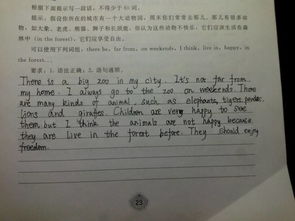 根据下面提示写一段话，不得少于60词。
提示：假设你所在的城市有一个大动物园，周末你们常常去那儿。那儿有很多动物，如大象、老虎、熊猫、狮子和长颈鹿。你认为这些动物不快乐，它们应该生活在森林中 (in the forest)。它们应享受自由。
可以使用下列词组：there be, far from, on weekends, I think, live in, happy, in the forest...
要求：1. 语法正确；2. 语句通顺。
There is a big zoo in my city. It's not far from
my home. I always go to the zoo on weekends. There
are many kinds of animal, such as elephants, tigers, pandas,
lions and giraffes. Children are very happy to see
them, but I think the animals are not happy because
they are live in the forest before. They should enjoy
freedom.
23